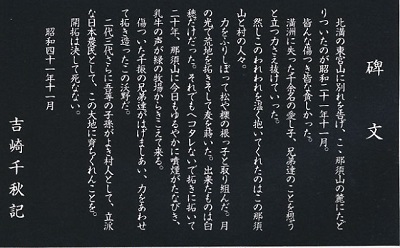 碑文
北満の東宮山に別れを告げ、こゝ那須山の麓にたど
りついたのが昭和二十一年十一月。
皆んな傷つき皆な貧しかった。
満洲に失った千余名の愛し子、兄弟達のことを想う
と立つ力さえ抜けていった。
然しこのわれわれを温く抱いてくれたのはこの那須
山と村の人々。
力をふりしぼって松や楢の根っ子と取り組んだ。月
の光で荒地を拓きそして麦を蒔いた。出来たものは白
穂だけだった。それでもヘコタレないで拓きに拓いて
二十年、那須山に今日もゆるやかに噴煙がたなびき、
乳牛の声が緑の牧場からきこえて来る。
傷ついた千振の兄弟達がはげましあい、力をあわせ
て拓き造ったこの沃野だ。
二代三代さらに吾等の子孫がよき村人として、立派
な日本農民として、この大地に育ちくれんことを。
開拓は決して死なない。
昭和四十一年十一月
吉崎千秋記